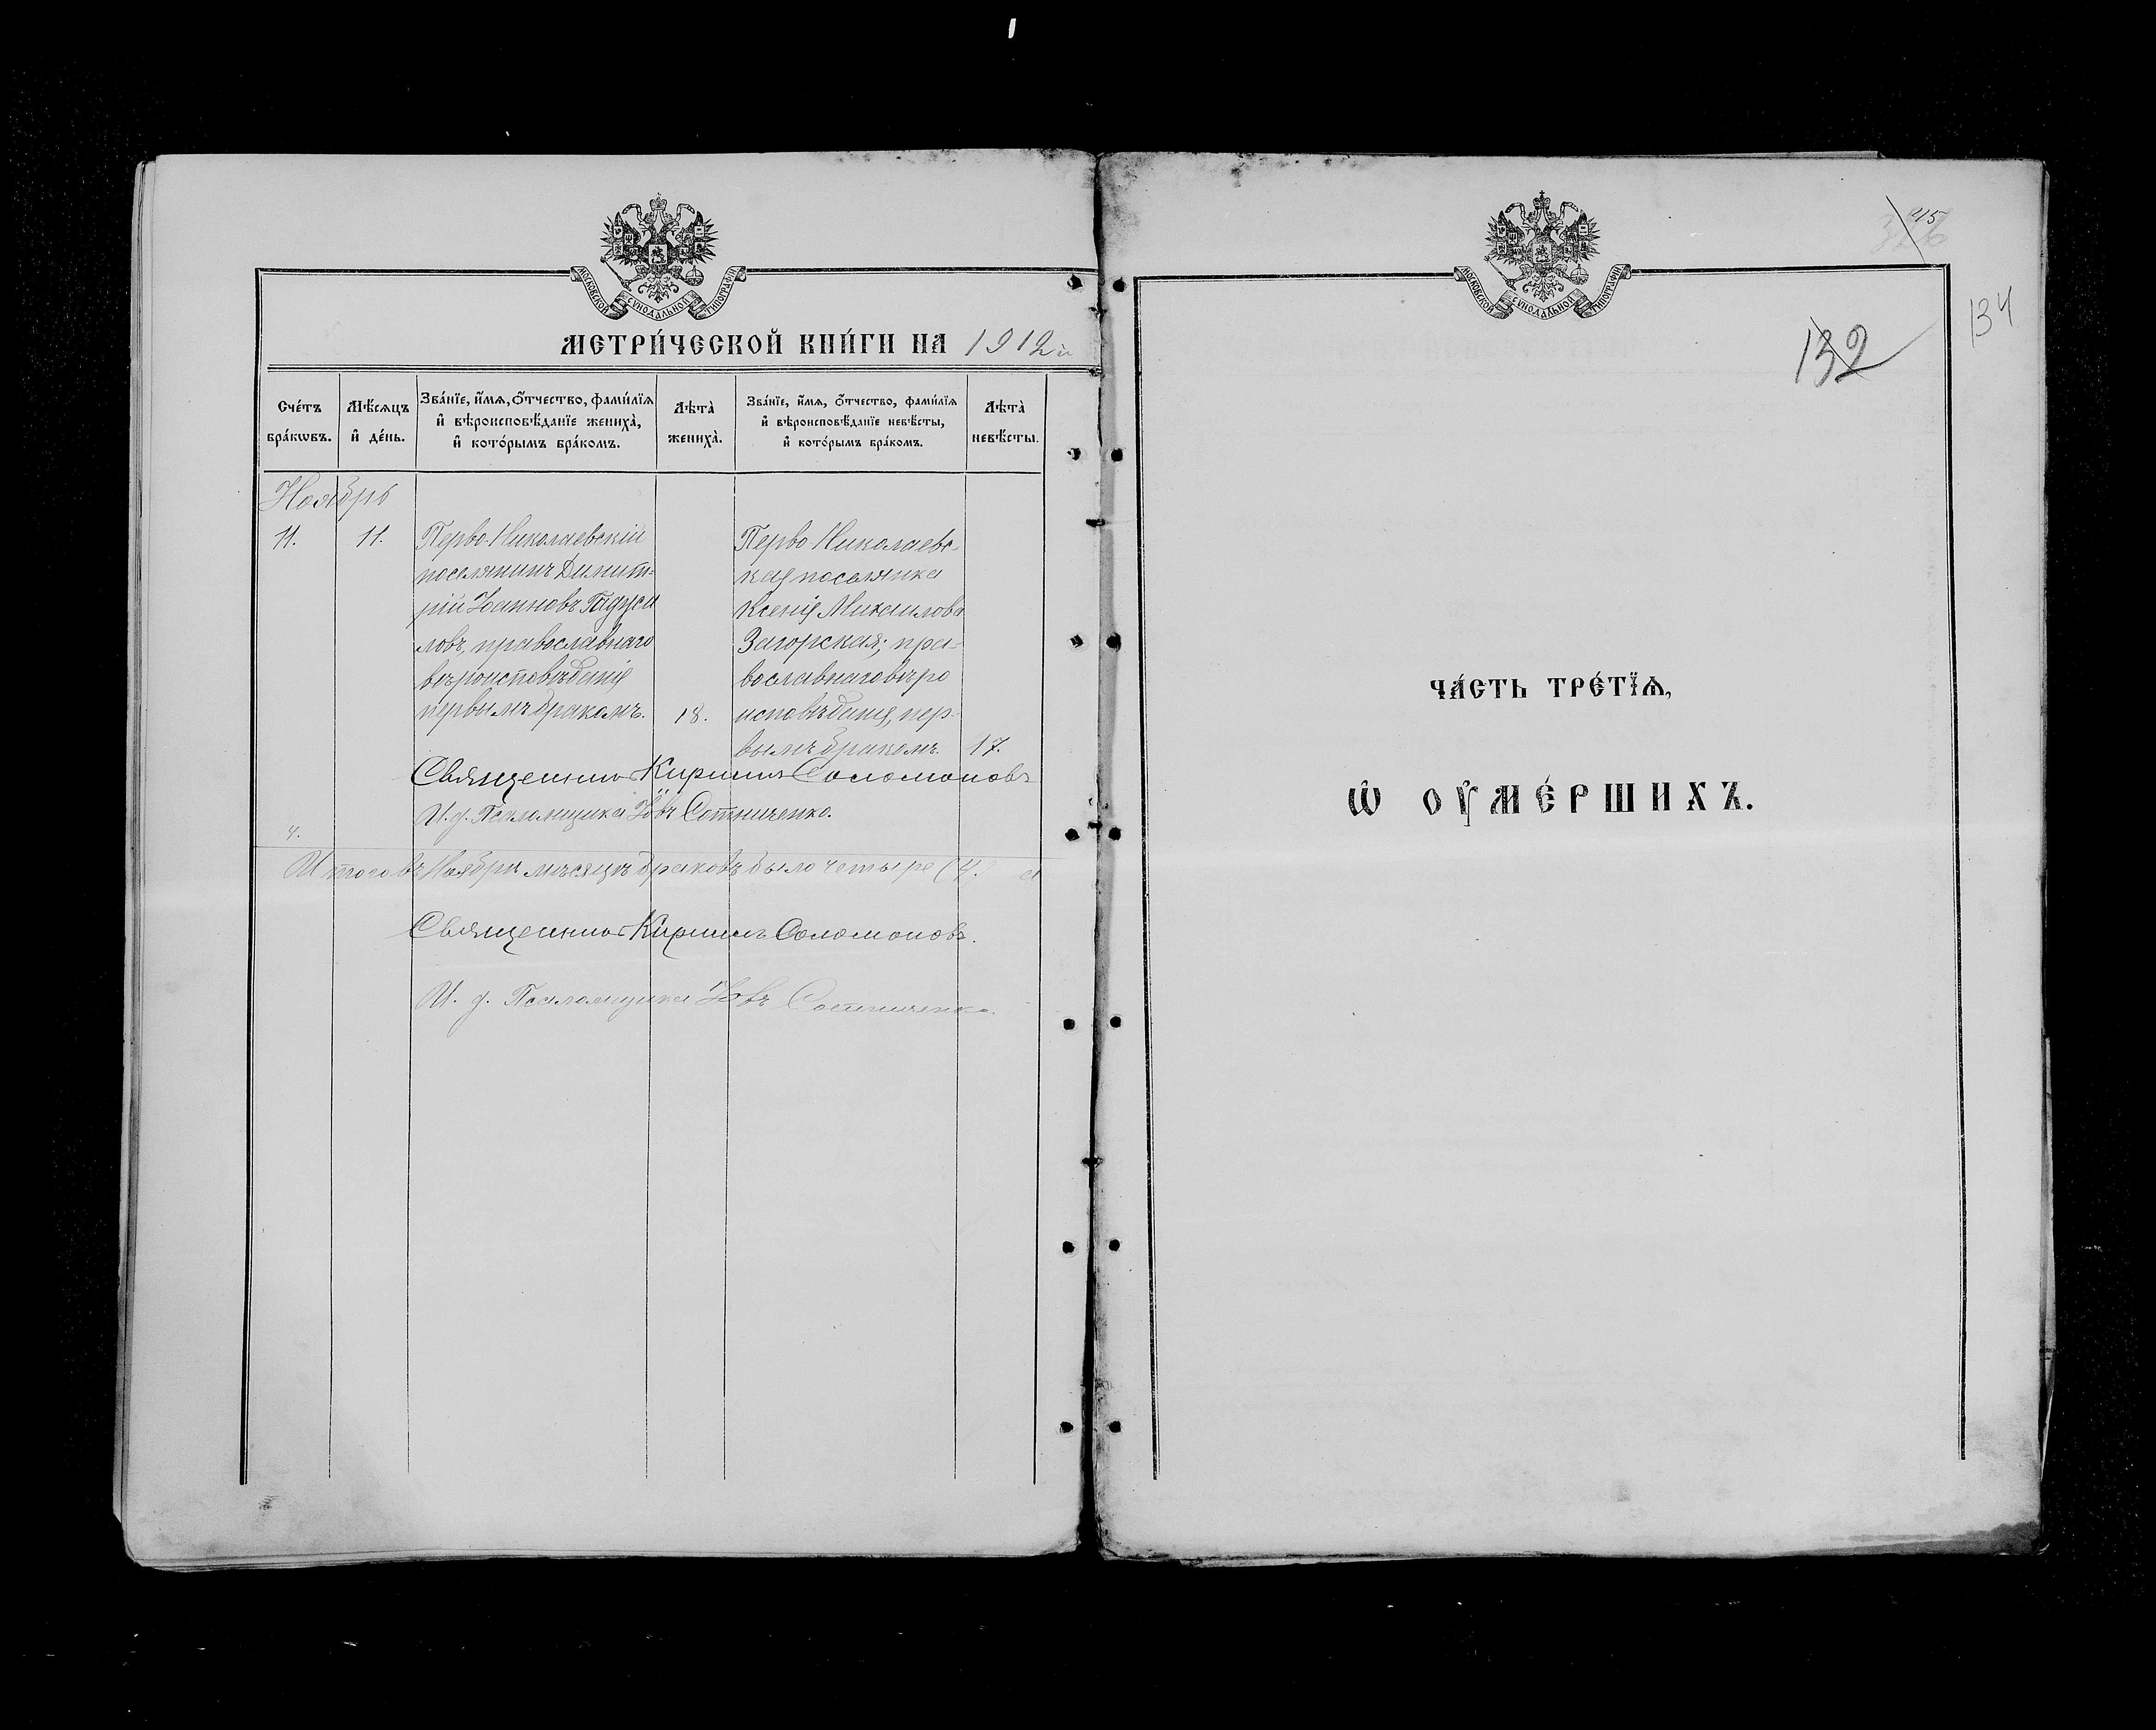 МОСКОВСКОЙ СѴНОДАЛЬНОЙ ТИПОГРАФІИ
МЕТРИ́ЧЕСКОЙ КНИ́ГИ НА 1912 й
Сче́тъ бра́кѡвъ.
Мѣ́сяцъ и҆ де́нь.
Зва́нїе, и҆́мѧ, ѻ҆́тчество, фами́лїѧ
и҆ вѣроисповѣ́данїе жениха̀,
и҆ кото́рымъ бра́комъ.
Лѣта̀ жениха̀.
Зва́нїе, и҆́мѧ, ѻ҆́тчество, фами́лїѧ
и҆ вѣроисповѣ́данїе невѣ́сты,
и҆ кото́рымъ бра́комъ.
Лѣта̀ невѣ́сты.
Ноябрь
11.
11.
Перво-Николаевскій
поселянинъ Димит-
рій Іоанновъ
ловъ, православнаго
вѣроисповѣданія
первымъ бракомъ.
18.
Перво Николаевс-
кая поселянка
Ксенія Михаилова
Загорская; пра-
вославнаго вѣро
исповѣданія, пер-
вымъ бракомъ.
17.
Священникъ Кириллъ Соломоновъ
И. д. Псаломщика Іовъ Сотниченко.
4.
Итого въ Ноябрѣ мѣсяцѣ браковъ было четыре (4).
Священникъ Кириллъ Соломоновъ.
И. д. Псаломщика Іовъ Сотниченко.
МОСКОВСКОЙ СѴНОДАЛЬНОЙ ТИПОГРАФІИ
45
134
132
ЧА́СТЬ ТРЕ́ТЇѦ,
Ѡ҆ ОУ҆МЕ́РШИХЪ.